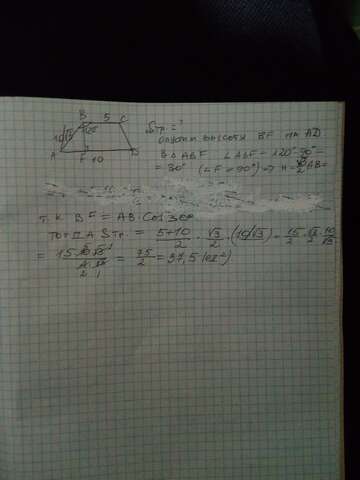 B 5 C
A F 10 D
Sтр = ?
опустим высоту BF на AD
В △ABF ∠ABF = 120°-90° =
= 30° (∠F = 90°) => H = √3/2 AB =
т.к BF = AB·cos 30°
то Sтр = (5+10)/2 · √3/2 · (10/√3) = 15/2 · √3/2 · 10/√3
= 75/2 = 37,5 (см²)